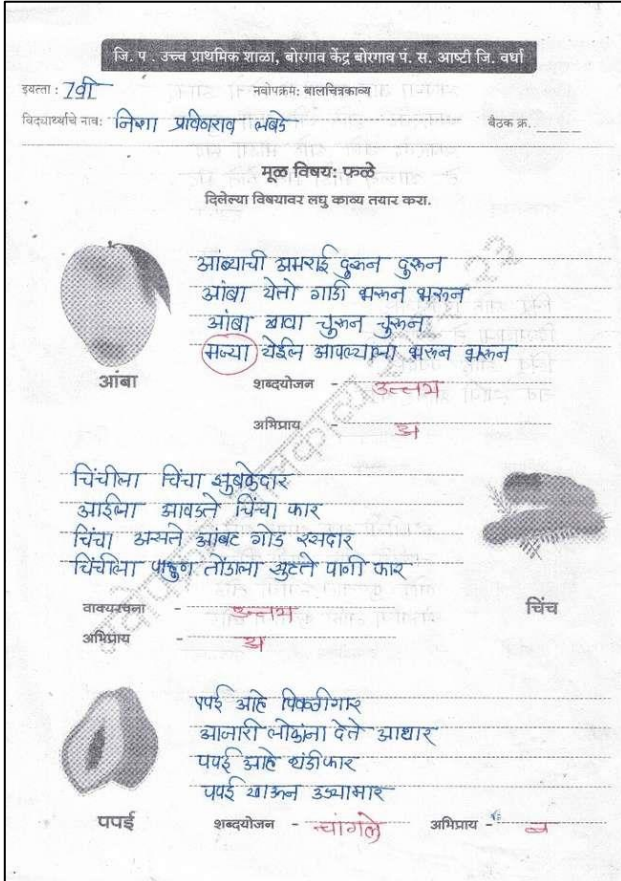 जि. प. उच्च प्राथमिक शाळा, बोरगाव केंद्र बोरगाव पं. स. आष्टी जि. वर्धा
इयत्ता : 7वी नवोपक्रम: बालचित्रकाव्य
विद्यार्थ्याचे नाव: निशा प्रविणराव लबडे बैठक क्र. ____
मूळ विषय: फळे
दिलेल्या विषयावर लघु काव्य तयार करा.
आंब्याची अमराई दुरून दुरून
आंबा येतो गाडी भरून भरून
आंबा खावा चुरून चुरून
मज्या येईल आपल्याला भरून भरून
आंबा
शब्दयोजन - उत्तम
अभिप्राय - अ
चिंचीला चिंचा झुबकेदार
आईला आवडते चिंचा फार
चिंचा असते आंबट गोड रसदार
चिंचीला पाहुण तोंडाला सुटते पाणी फार
चिंच
वाक्यरचना - उत्तम
अभिप्राय - अ
पपई आहे पिवळीगार
आजारी लोकांना देते आधार
पपई आहे थंडीफार
पपई खाऊन
पपई
शब्दयोजन - चांगले अभिप्राय - ब